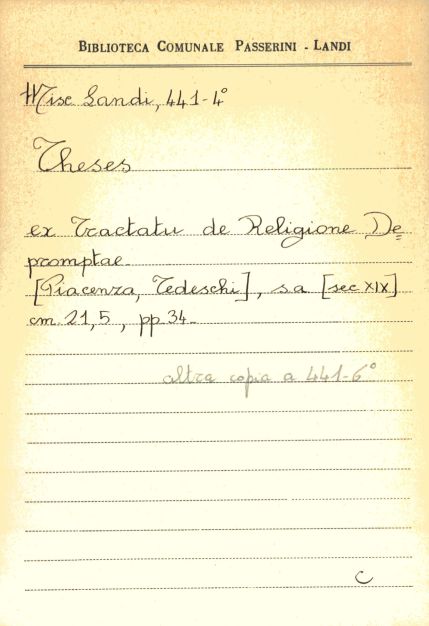 BIBLIOTECA COMUNALE PASSERINI - LANDI
Misc Landi, 441-4°
Theses
ex Tractatu de Religione De=
promptae.
[Piacenza, Tedeschi], s.a [sec XIX]
cm. 21,5, pp. 34.
altra copia a 441-6°
C